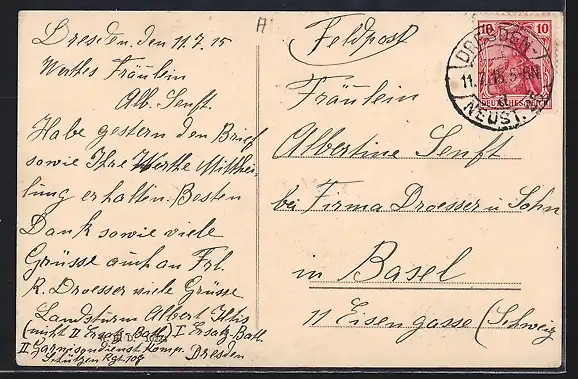 Dresden, den 11.7.15
Werthes Fräulein
Alb. Senft.
Habe gestern den Brief
sowie Ihre Werthe Mitthei-
lung erhalten. Besten
Dank sowie viele
Grüsse auch an Frl.
K. Droesser viele Grüsse
Landsturm Albert Iltis
(nicht II. Ersatz-Batl.) I. Ersatz-Batl.
II. Garnisondienst Komp.
Schützen Rgt. 108
Dresden
A
Feldpost
Fräulein
Albertine Senft
bei Firma Droesser u Sohn
in Basel
11 Eisengasse (Schweiz
10
DEUTSCHES REICH
DRESDEN-
11.7.15. 5-6N
d
NEUST.